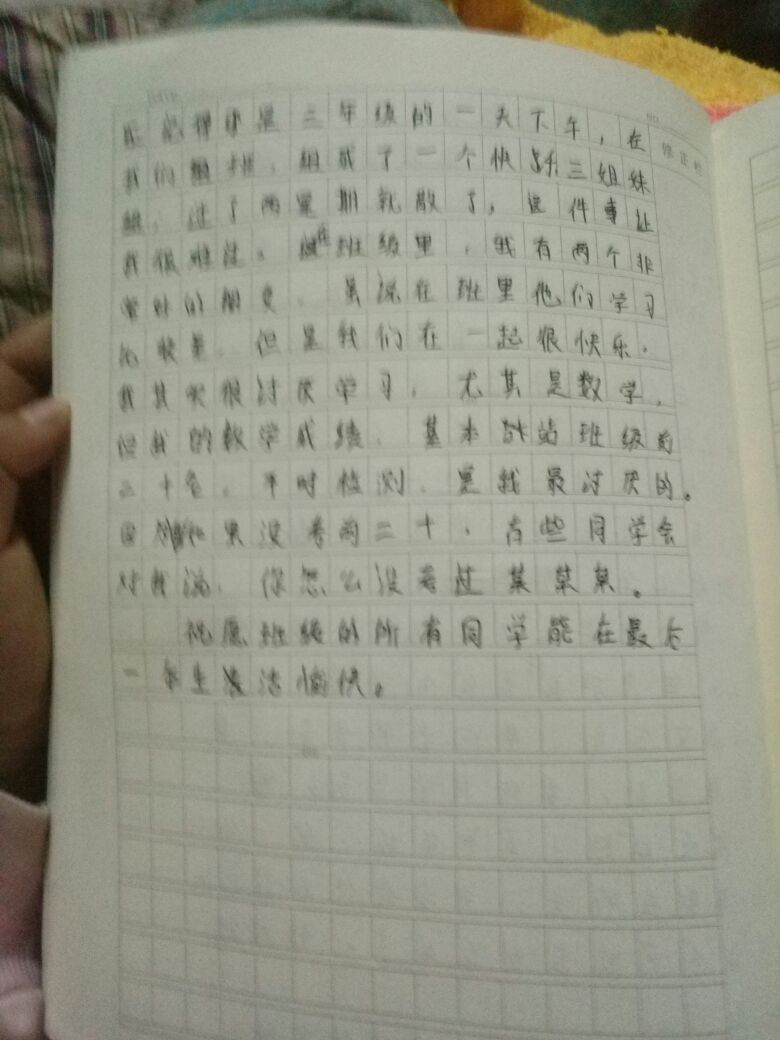 我记得那是三年级的一天下午，在
我们班，组成了一个快乐三姐妹
组，过了两星期就散了，这件事让
我很难过。在班级里，我有两个非
常好的朋友，虽说在班里他们学习
但是我们在一起很快乐。
我其实很讨厌学习，尤其是数学，
但我的数学成绩，基本战站班级前
二十名。平时检测，是我最讨厌的。
因为如果没考前二十，有些同学会
对我说，你怎么没考过某某某。
祝愿班级的所有同学能在最后
一年生活愉快。
修正栏